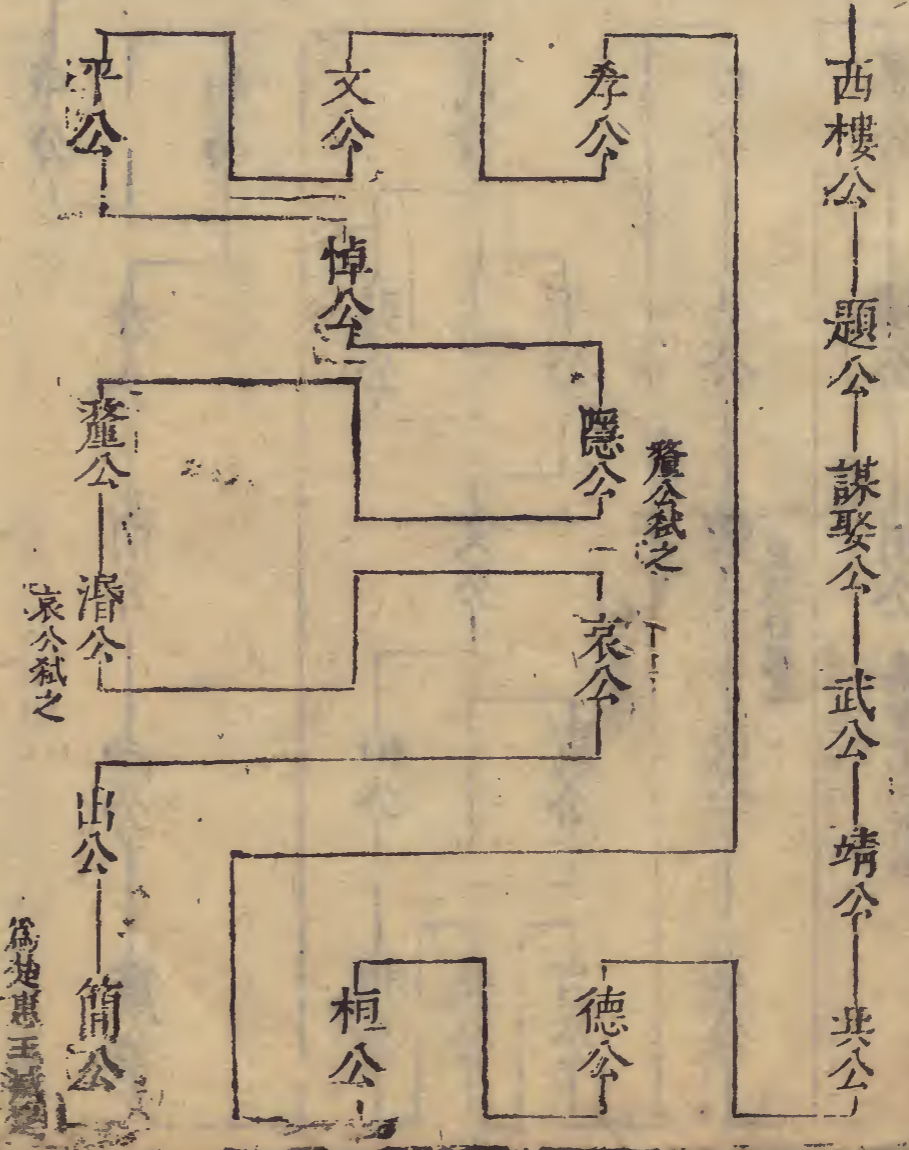 西樓公
題公
謀娶公
武公
靖公
共公
德公
桓公
孝公
文公
平公
悼公
隱公
釐公弒之
釐公
湣公
哀公弒之
哀公
出公
簡公
為楚惠王滅